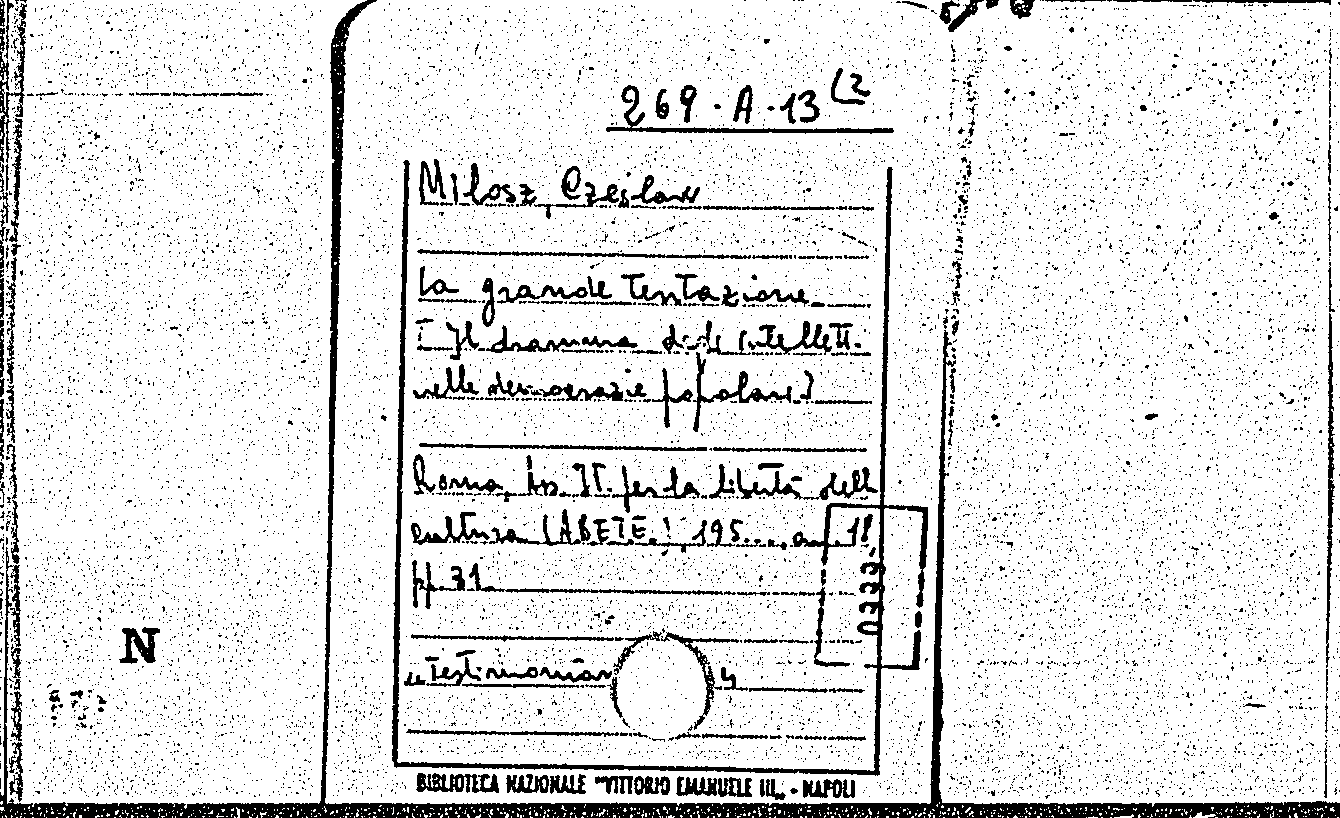 269.A.13 (2
Milosz, Czeslaw
La grande tentazione.
[Il dramma degli intellett.
nelle democrazie popolari]
Roma, Ass. It. per la libertà della
cultura (ABETE.), 195..., cm. 18,
pp. 31.
"Testimonian 4
N
BIBLIOTECA NAZIONALE "VITTORIO EMANUELE III„ - NAPOLI